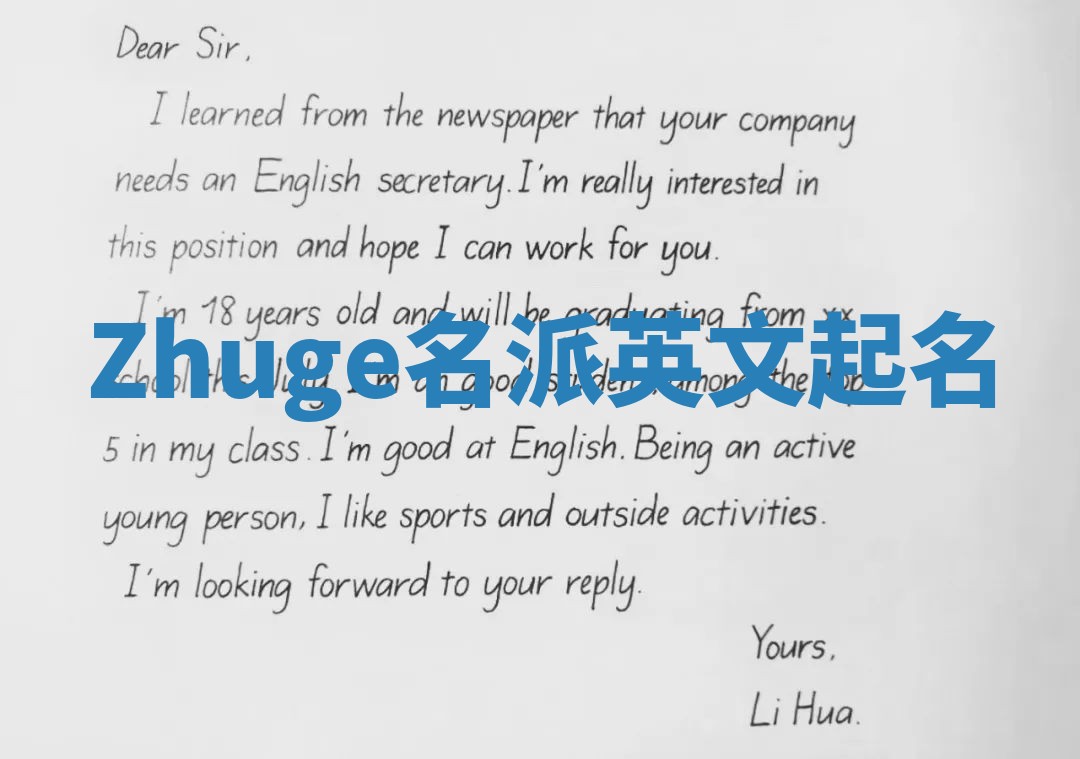 Dear Sir,
I learned from the newspaper that your company
needs an English secretary. I'm really interested in
this position and hope I can work for you.
I'm 18 years old and will be graduating from xx
Zhuge名派英文起名
school this July. I'm an good student, among the top
5 in my class. I'm good at English. Being an active
young person, I like sports and outside activities.
I'm looking forward to your reply.
Yours,
Li Hua.